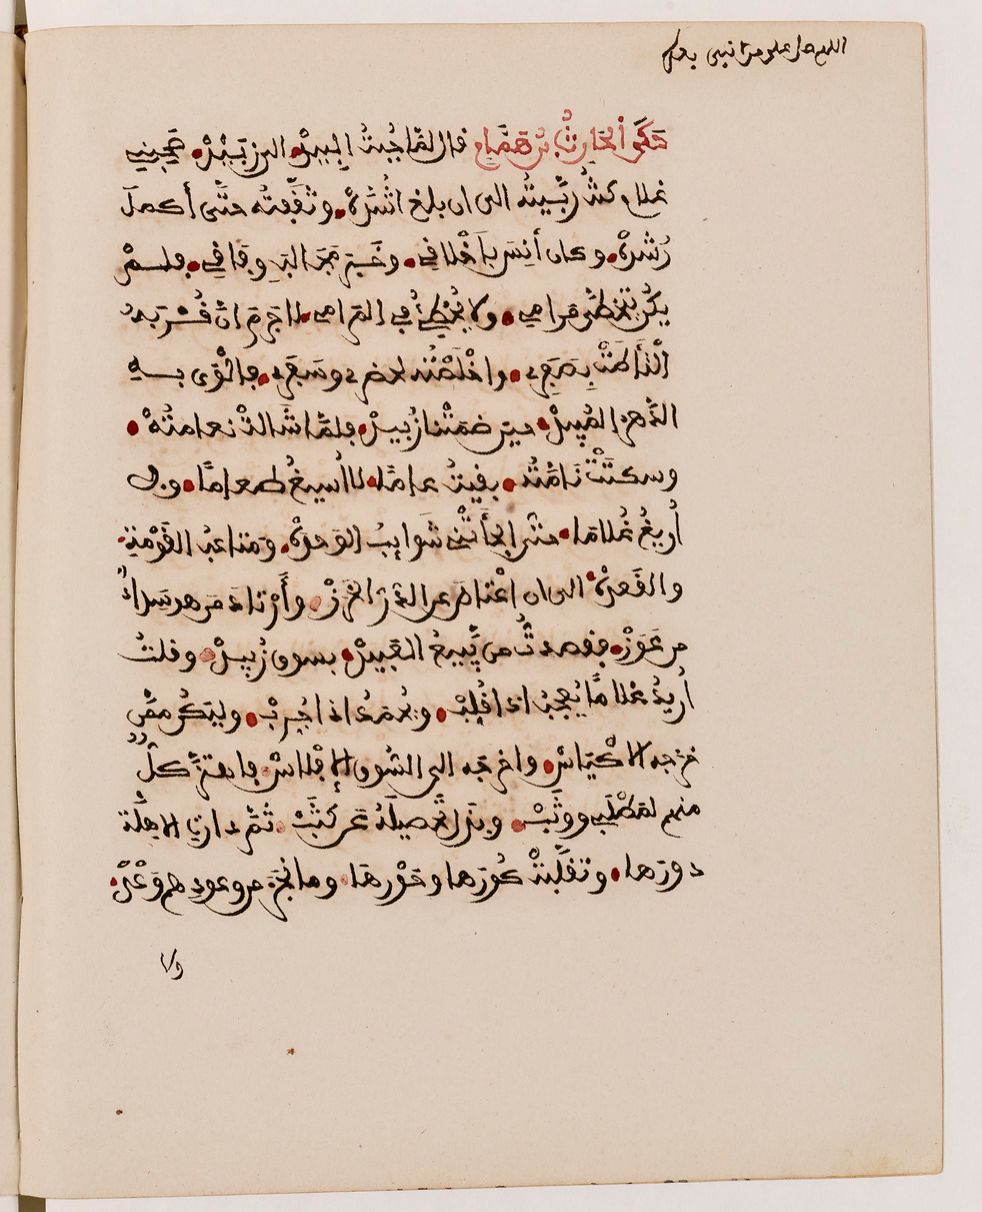 اللهم صل على من لا نبي بعده
حَكَى الحَارِثُ بْنُ هَمَّامٍ قال لمّا جُبتُ البِيدْ الى زَبِيدْ صَحِبَنِي
غلامٌ كنتُ ربَّيتُه الى ان بلغ اشُدَّهْ وثقَّفتُه حتَّى أكملَ
رُشْدَهْ وكان أَنِسَ بِأَخْلاقِي وخَبَرَ مَجَالِبَ وِفَاقِي فلمْ
يكُنْ يتخطَّى مرامِي ولا يُخْطِئُ في المَرامِي لا جَرَمَ انَّ قُرَبَهُ
الْتَاطَتْ بِصَفَرِي واخْلَصْتُه لحضرِي وسَفَرِي فألْوَى بهِ
الدَّهرُ المُبِيدْ حينَ ضمَّتْنا زبِيدْ فلمَّا شَالتْ نعامتُهْ
وسكنَتْ نَأمَتُه بقيتُ عامًا لا أُسِيغُ طعامًا ولا
أُرِيغُ غُلامًا حتّى ألجأَتْني شَوايِبُ الوَحدهْ ومتاعبُ القَوْمَةِ
والقَعدهْ الى ان اعْتَاضَ عن الدُّرِّ الخَرَزْ وأرْتادَ مَن هو سَدادٌ
من عَوَزْ فقصدتُّ من يَّبيعُ العَبيدْ بسوق زَبِيدْ وقلتُ
أُرِيدُ غُلامًا يُعْجِبُ اذا قُلِّبْ ويُحْمَدُ اذا جُرِّبْ وليَكُنْ ممَّن
خرّجه الاكْيَاسْ واخرجه الى السُّوق الإفْلاسْ فاهتزَّ كلٌّ
منهم لمَطْلَبِي ووثَبْ وبذلَ تَحصِيلَهُ عَن كَثَبْ ثمَّ دارتِ الاهِلَّة
دورَها وتقلَّبتْ كُورَها وحَوْرَها وما نَجَزَ من وعودِهم وَعْدْ
ولا